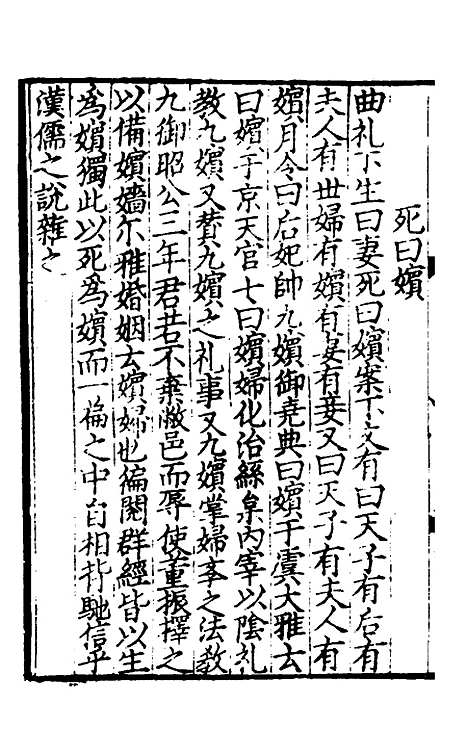 死曰嬪
曲礼下生曰妻死曰嬪案下文有曰天子有后有
夫人有世婦有嬪有妻有妾又曰天子有夫人有
嬪月令曰后妃帥九嬪御堯典曰嬪于虞大雅云
曰嬪于京天官七曰嬪婦化治絲枲内宰以陰礼
教九嬪又賛九嬪之礼事又九嬪掌婦孝之法教
九御昭公三年君若不棄敝邑而辱使董振擇之
以備嬪嬙尔雅婚姻云嬪婦也徧閱群經皆以生
為嬪獨此以死為嬪而一篇之中自相背馳信乎
漢儒之說雜之